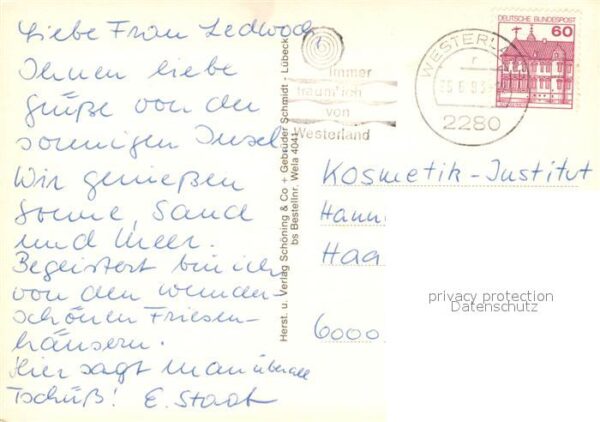 Liebe Frau Ledwoch,
Ihnen liebe
Grüße von der
sonnigen Insel.
Wir genießen
Sonne, Sand
und Meer.
Begeistert bin ich
von den wunder-
schönen Friesen-
häusern.
Hier sagt man überall
Tschüß! E. Staat
Herst. u. Verlag Schöning & Co + Gebrüder Schmidt - Lübeck
bs Bestellnr. Wela 4041
immer
träum' ich
von
Westerland
WESTERLA
2280
DEUTSCHE BUNDESPOST
60
Kosmetik-Institut
Hann
Haa
6000
privacy protection
Datenschutz